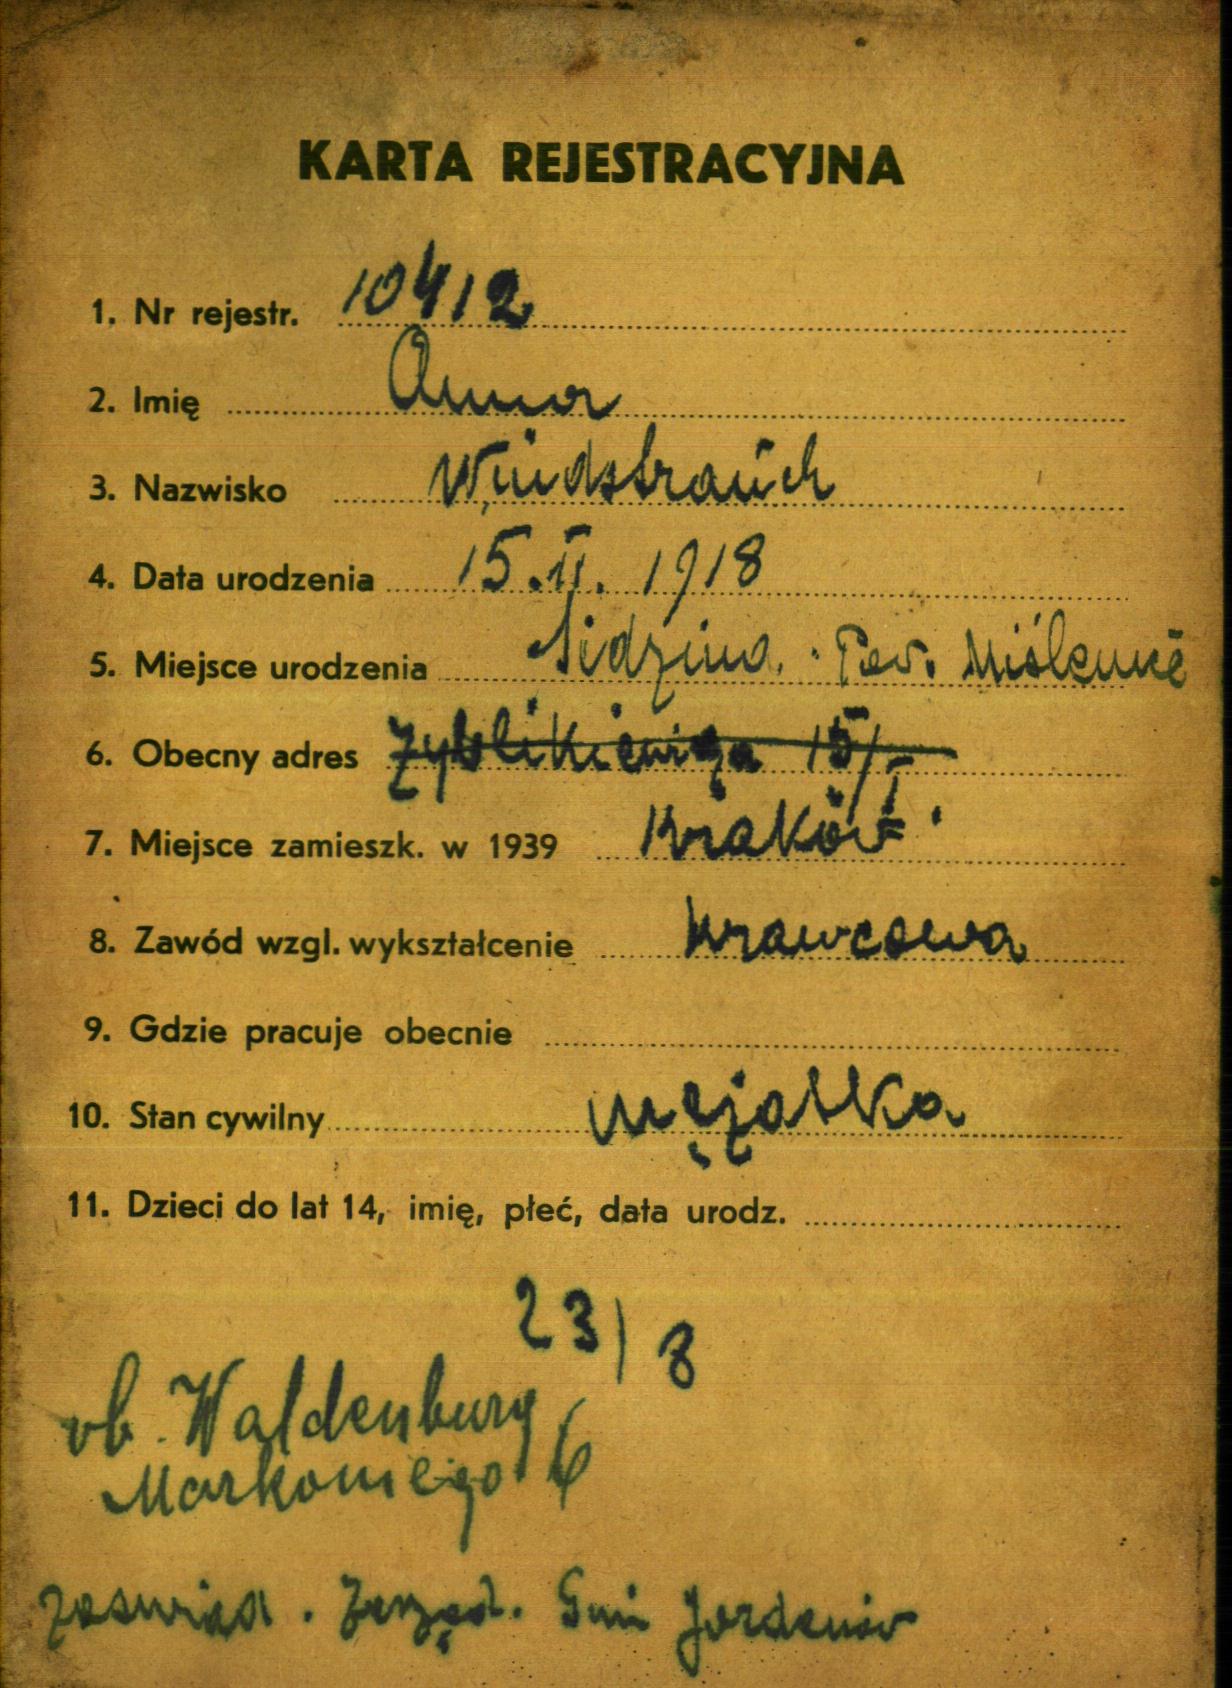 KARTA REJESTRACYJNA
1. Nr rejestr. 10412
2. Imię Anna
3. Nazwisko Windstrauch
4. Data urodzenia 15.II. 1918
5. Miejsce urodzenia Sidzina. Pow. Miślenice
6. Obecny adres Zyblikiewicza 15/I
7. Miejsce zamieszk. w 1939 Kraków
8. Zawód wzgl. wykształcenie krawcowa
9. Gdzie pracuje obecnie
10. Stan cywilny mężatka
11. Dzieci do lat 14, imię, płeć, data urodz.
23/8
Waldenburg
Markoniego 6
zaswiad. Zarząd. Gmi Jordanów